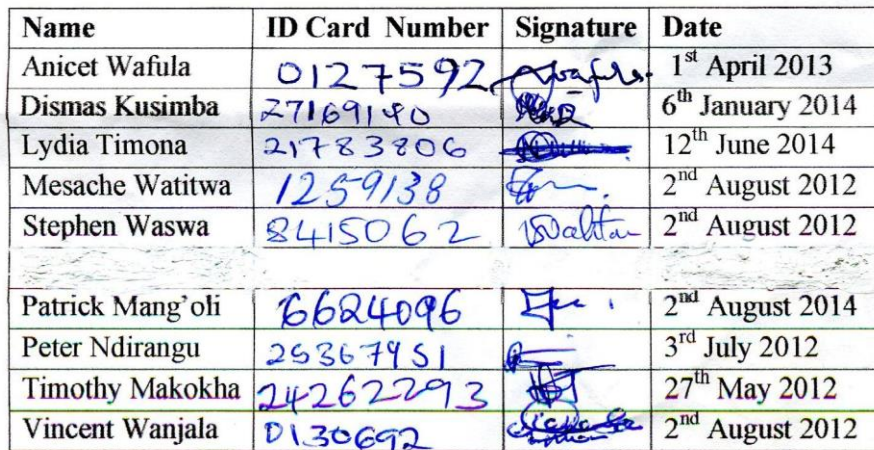 Name ID Card Number Signature Date
Anicet Wafula 0127592 Wafula. 1st April 2013
Dismas Kusimba 27169140 6th January 2014
Lydia Timona 21783806 12th June 2014
Mesache Watitwa 1259138 2nd August 2012
Stephen Waswa 8415062 2nd August 2012
Patrick Mang'oli 6624096 2nd August 2014
Peter Ndirangu 25367951 3rd July 2012
Timothy Makokha 24262293 27th May 2012
Vincent Wanjala 0130692 2nd August 2012